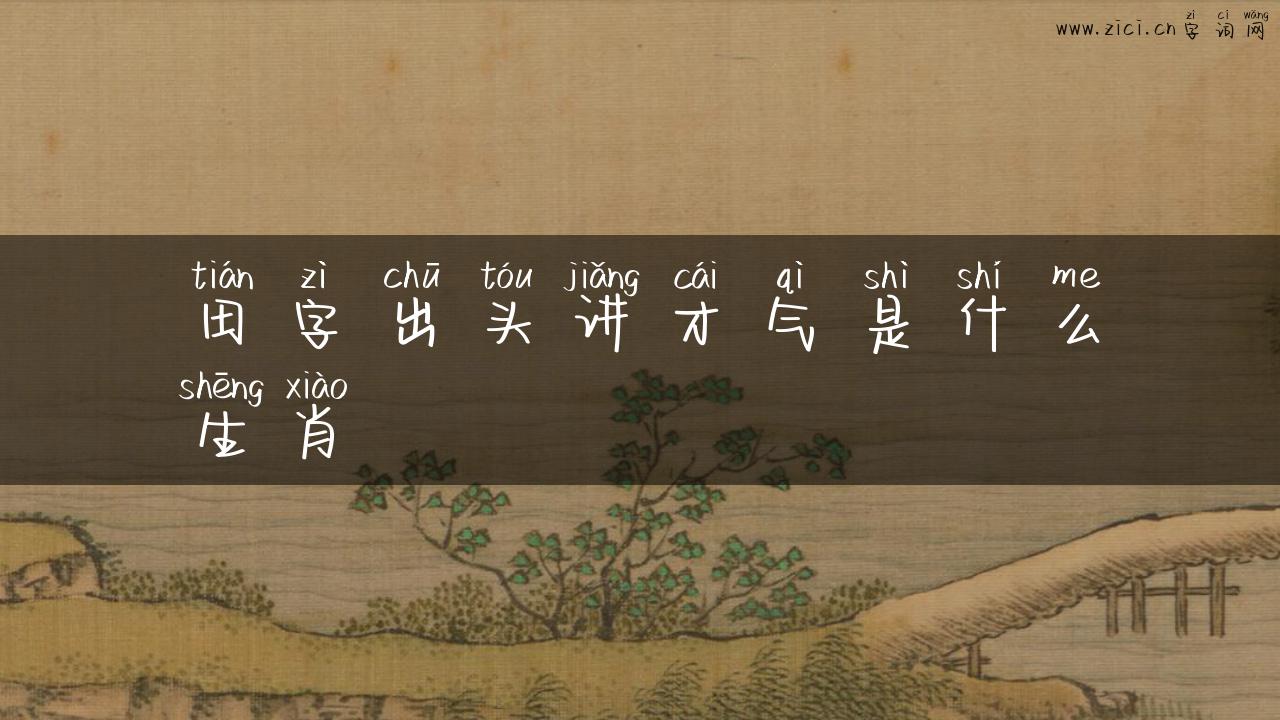 zì cí wǎng
www.zici.cn 字词网
tián zì chū tóu jiǎng cái qì shì shí me
田字出头讲才气是什么
shēng xiào
生肖